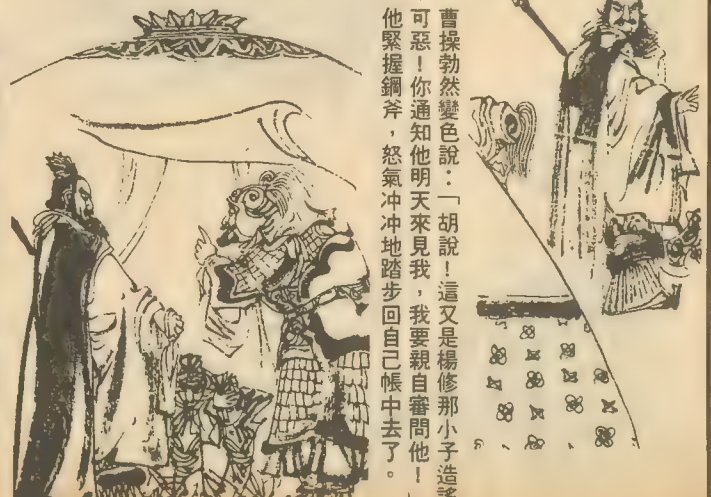 曹操勃然變色說：「胡說！這又是楊修那小子造謠
可惡！你通知他明天來見我，我要親自審問他！」
他緊握鋼斧，怒氣冲冲地踏步回自己帳中去了。